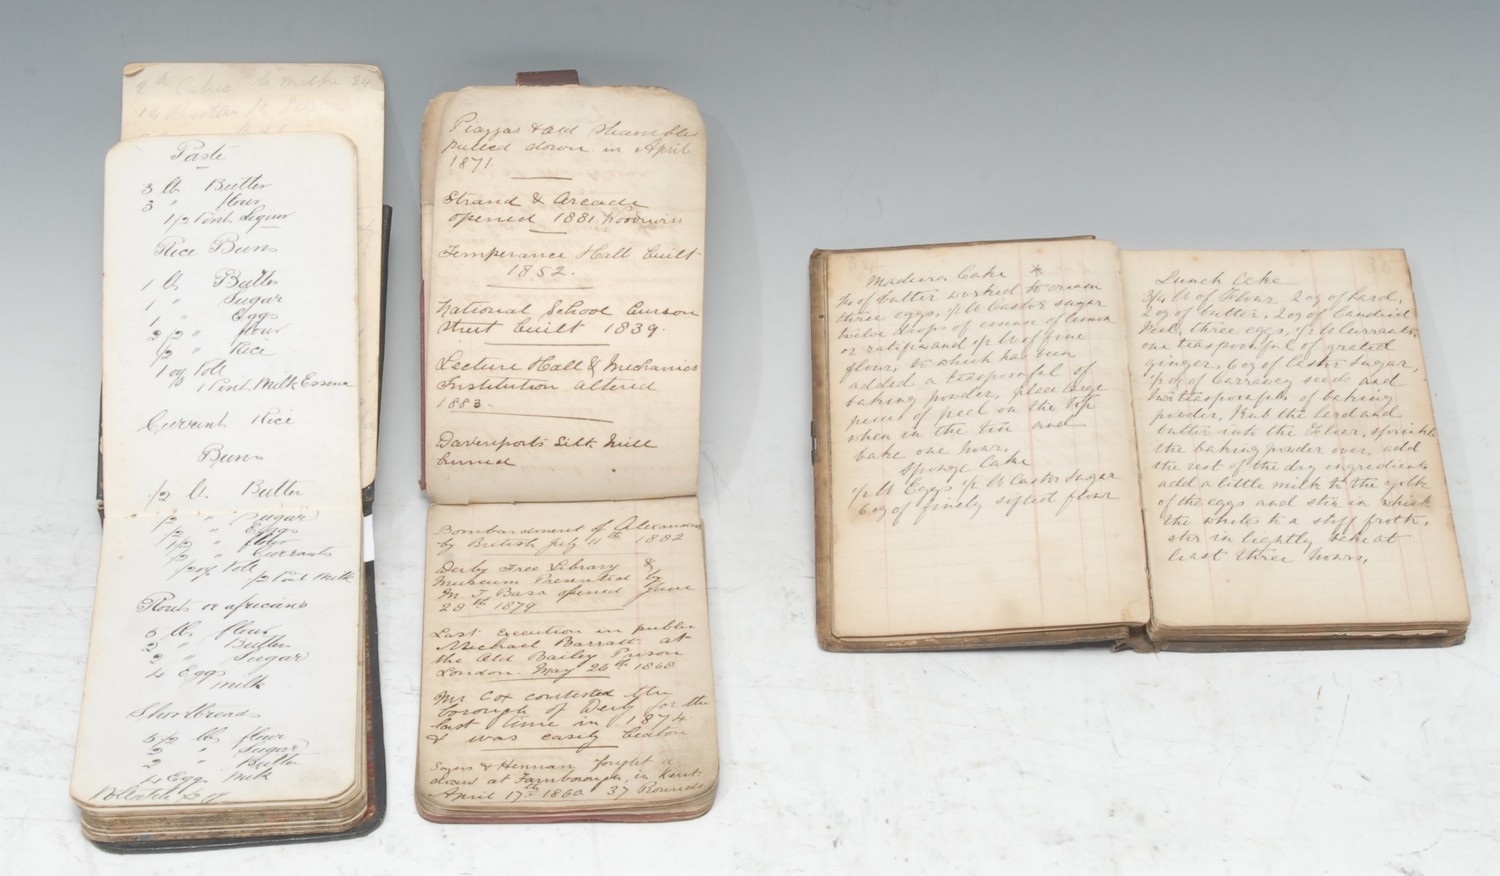 Cakes to make 24
Butter
Paste
3 lb Butter
3 " flour
1/2 Pint Liquor
Rice Buns
1 lb Butter
1 " Sugar
1 " Eggs
2 1/2 " flour
1/2 " Rice
1 oz Voll
1 Pint Milk Essence
Currant Rice
Buns
1/2 lb. Butter
1/2 " Sugar
1/2 " Eggs
1 1/2 " flour
1/2 " Currants
1/2 oz Voll
1/2 Pint Milk
Routs or africans
5 lb flour
2 " Butter
2 " Sugar
4 Eggs
Milk
Shortbreads
5 1/2 lb flour
2 " Sugar
2 " Butter
4 Eggs Milk
Piazzas & old Shambles
pulled down in April
1871.
Strand & Arcade
opened 1881. Woodwiss
Temperance Hall built
1852.
National School Curzon
Street built 1839.
Lecture Hall & Mechanics
Institution altered
1883.
Davenports Silk Mill
burned
Bombardment of Alexandria
by British July 11th 1882
Derby Free Library &
Museum Presented by
M. T. Bass opened June
28th 1879
Last Execution in public
Michael Barratt at
the Old Bailey Prison
London. May 26th 1868
Mr Cox contested the
borough of Derby for the
last time in 1874
& was easily beaton
Sayers & Heenan fought a
draw at Farnborough, in Kent
April 17th 1860 37 Rounds
Madiera Cake *
1/4 of butter worked to cream
three eggs, 1/2 lb Castor sugar
twelve drops of essence of lemon
or ratifia and 1/2 lb of fine
flour, to which has been
added a teaspoonful of
baking powder, place large
piece of peel on the top
when in the tin and
bake one hour.
Sponge Cake
1/2 lb Eggs 1/2 lb Castor Sugar
6 oz of finely sifted flour
35
Lunch Cake
3/4 lb of Flour 2 oz of Lard,
2 oz of butter, 2 oz of Candied
Peel, three eggs, 1/2 lb Currants,
one teaspoonful of grated
ginger, 6 oz of Castor Sugar,
1/2 oz of Carravey seeds and
two teaspoonfuls of baking
powder, Rub the lard and
butter into the Flour, sprinkle
the baking powder over, add
the rest of the dry ingredients
add a little milk to the yolk
of the eggs and stir in whisk
the whites to a stiff froth,
stir in lightly bake at
least three hours.